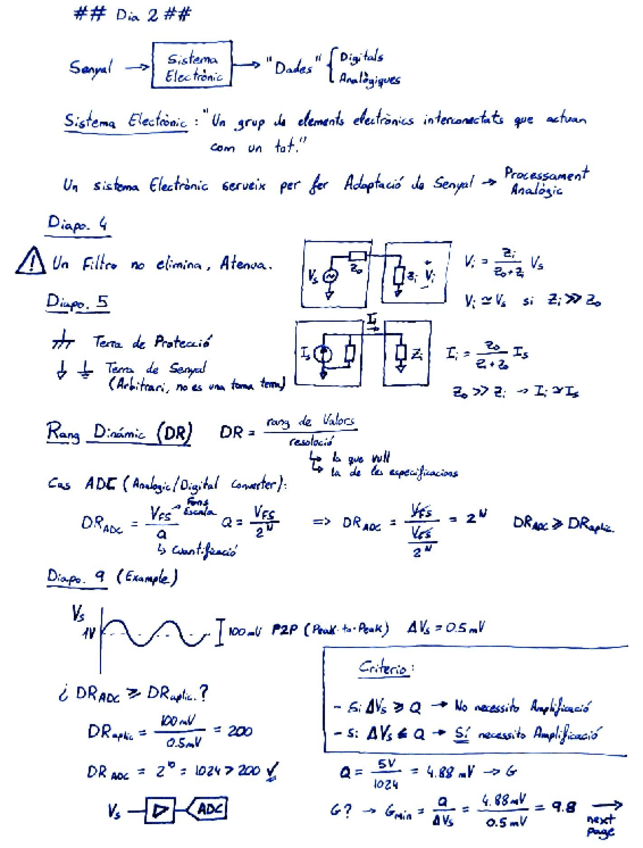 ## Dia 2 ##
Senyal → Sistema Electrònic → "Dades" { Digitals
Analògiques
Sistema Electrònic : "Un grup de elements electrònics interconectats que actuan
com un tot."
Un sistema Electrònic serveix per fer Adaptació de Senyal → Processament Analògic
Diapo. 4
! Un Filtro no elimina, Atenua.
Vs Zo Zi + Vi -
Vi = Zi / (Zo + Zi) Vs
Vi ≃ Vs si Zi >> Zo
Diapo. 5
Terra de Protecció
Terra de Senyal
(Arbitrari, no es una toma terra)
Is Ii Zi
Ii = Zo / (Zi + Zo) Is
Zo >> Zi → Ii ≃ Is
Rang Dinámic (DR) DR = rang de Valors / resolució
↳ la que vull
↳ la de les especificacions
Cas ADC (Analogic/Digital Converter):
DR ADC = VFS / Q → Fons Escala Q = VFS / 2^N => DR ADC = VFS / (VFS / 2^N) = 2^N DR ADC ≥ DR aplic.
↳ Cuantificació
Diapo. 9 (Example)
Vs
1V 100mV P2P (Peak-to-Peak) ΔVs = 0.5mV
¿ DR ADC ≥ DR aplic.?
DR aplic = 100mV / 0.5mV = 200
DR ADC = 2^10 = 1024 > 200 ✓
Vs ▷ ADC
Criterio :
- Si ΔVs ≥ Q → No necessito Amplificació
- Si ΔVs ≤ Q → Sí necessito Amplificació
Q = 5V / 1024 = 4.88 mV → G
G? → Gmin = Q / ΔVs = 4.88mV / 0.5mV = 9.8 →
next
page